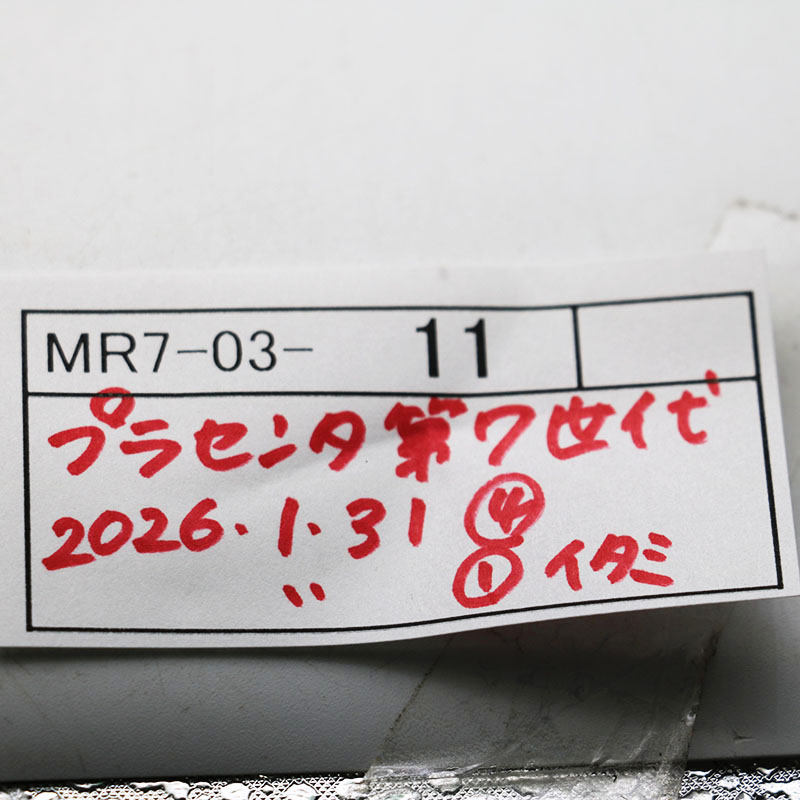 MR7-03- 11
プラセンタ第7世代
2026.1.31 ④
〃 ① イタミ